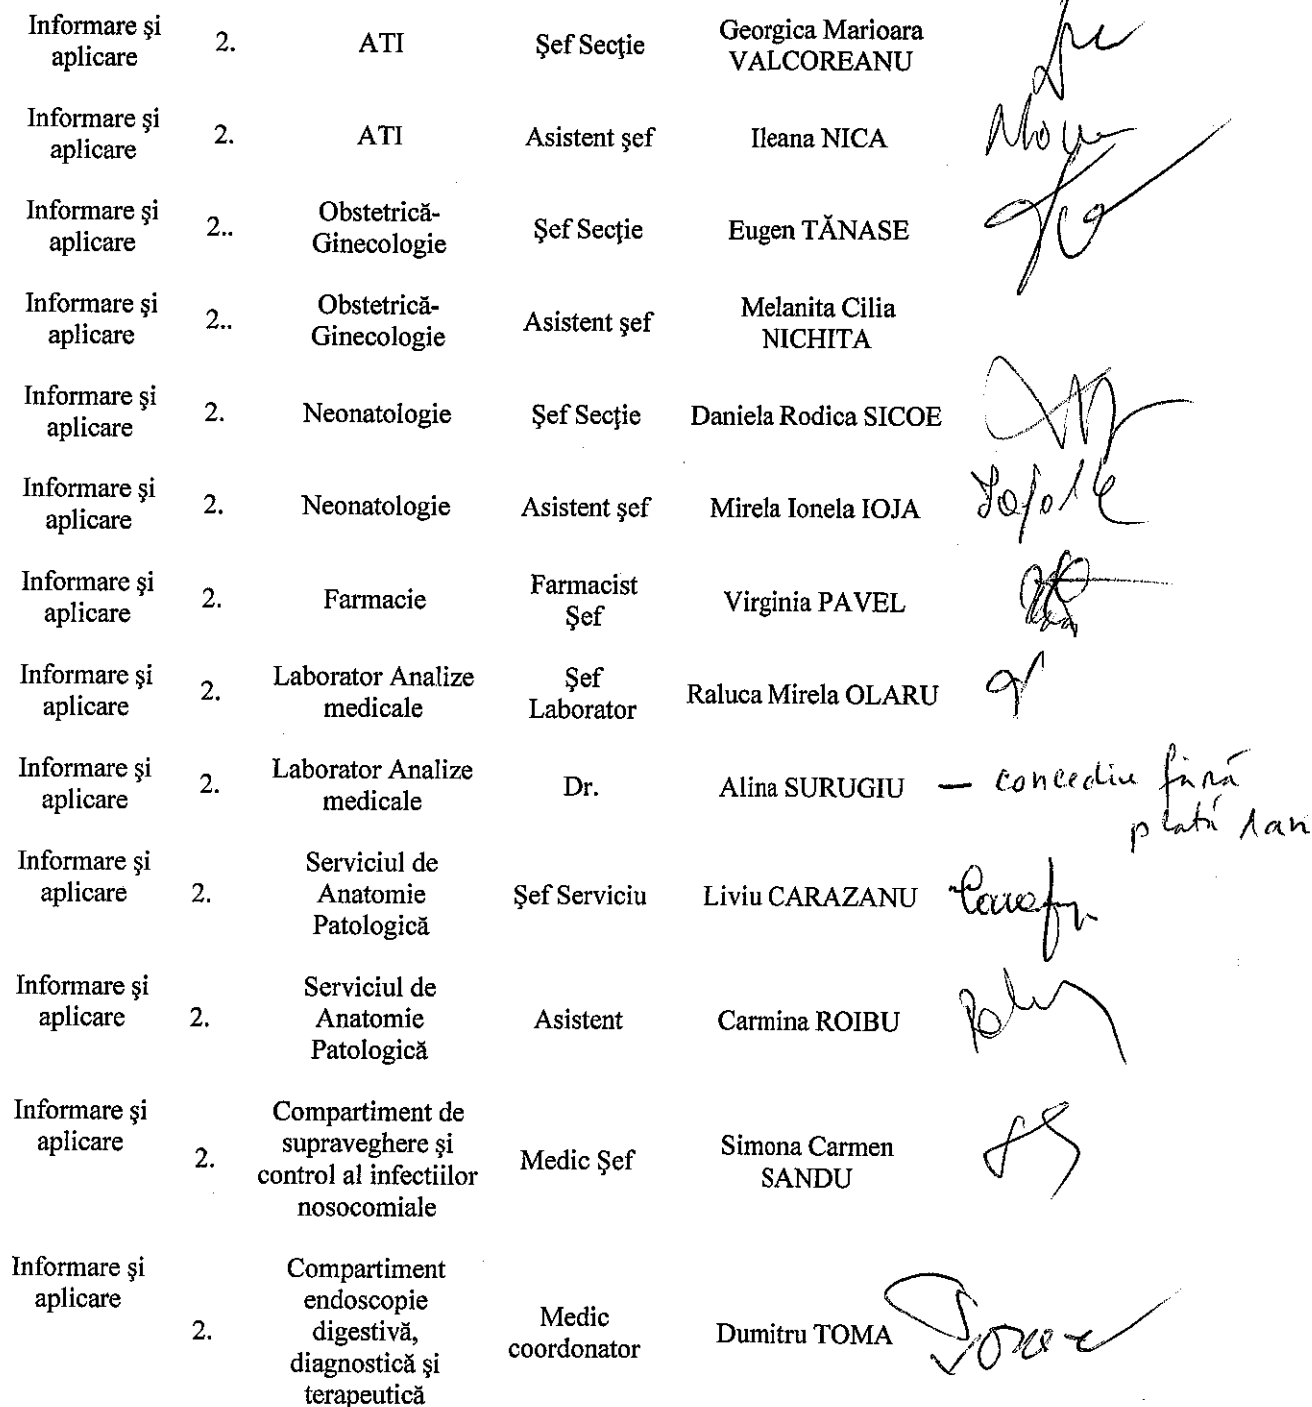 Informare şi aplicare 2. ATI Şef Secţie Georgica Marioara VALCOREANU
Informare şi aplicare 2. ATI Asistent şef Ileana NICA
Informare şi aplicare 2.. Obstetrică-Ginecologie Şef Secţie Eugen TĂNASE
Informare şi aplicare 2.. Obstetrică-Ginecologie Asistent şef Melanita Cilia NICHITA
Informare şi aplicare 2. Neonatologie Şef Secţie Daniela Rodica SICOE
Informare şi aplicare 2. Neonatologie Asistent şef Mirela Ionela IOJA
Informare şi aplicare 2. Farmacie Farmacist Şef Virginia PAVEL
Informare şi aplicare 2. Laborator Analize medicale Şef Laborator Raluca Mirela OLARU
Informare şi aplicare 2. Laborator Analize medicale Dr. Alina SURUGIU — concediu fără plată 1 an
Informare şi aplicare 2. Serviciul de Anatomie Patologică Şef Serviciu Liviu CARAZANU
Informare şi aplicare 2. Serviciul de Anatomie Patologică Asistent Carmina ROIBU
Informare şi aplicare 2. Compartiment de supraveghere şi control al infectiilor nosocomiale Medic Şef Simona Carmen SANDU
Informare şi aplicare 2. Compartiment endoscopie digestivă, diagnostică şi terapeutică Medic coordonator Dumitru TOMA